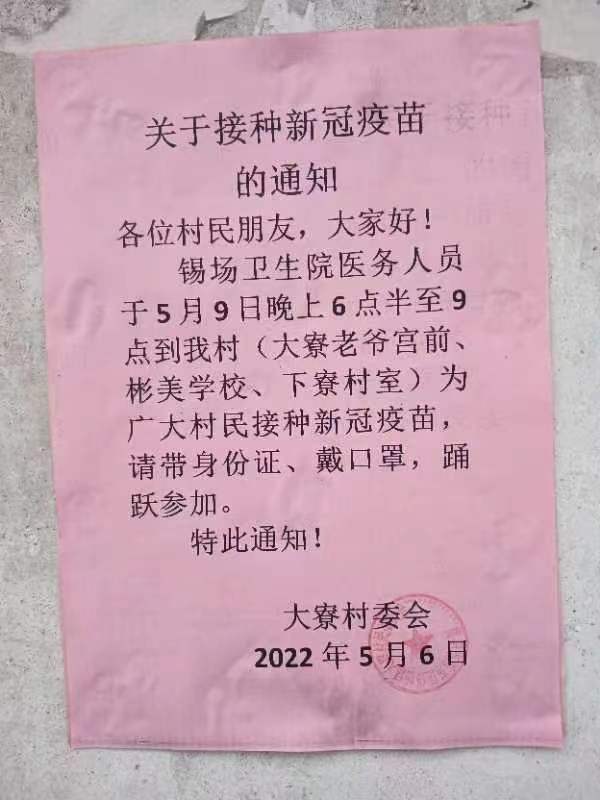 关于接种新冠疫苗
的通知
各位村民朋友，大家好！
锡场卫生院医务人员
于5月9日晚上6点半至9
点到我村（大寮老爷宫前、
彬美学校、下寮村室）为
广大村民接种新冠疫苗，
请带身份证、戴口罩，踊
跃参加。
特此通知！
大寮村委会
2022年5月6日